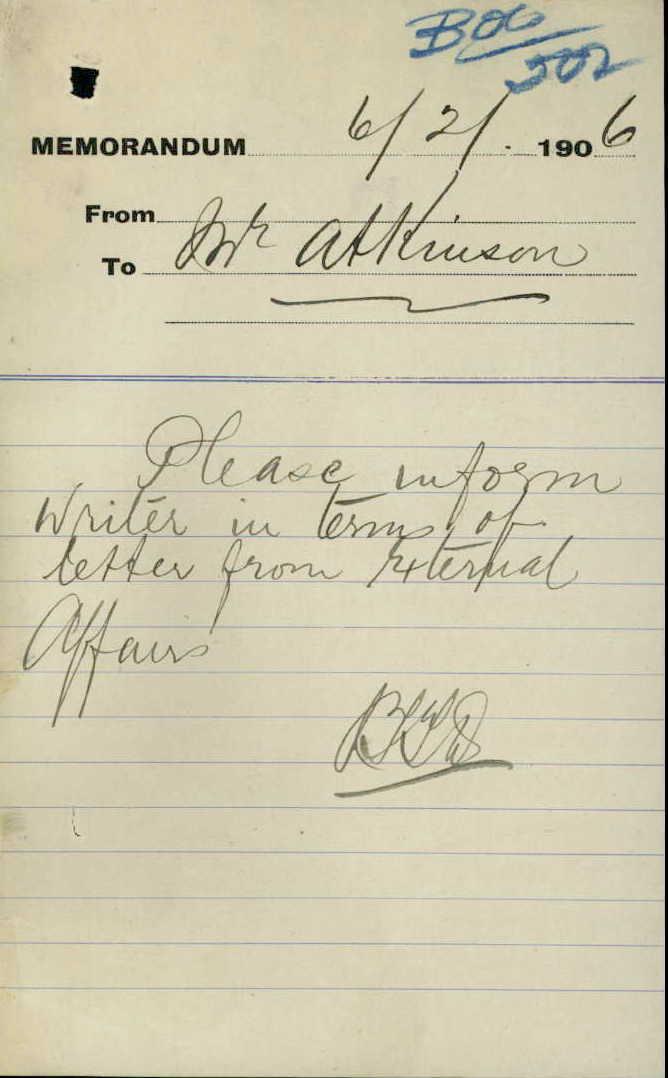 B06
502
MEMORANDUM 6/2/. 1906
From
To Mr Atkinson
Please inform
writer in terms of
letter from External
Affairs